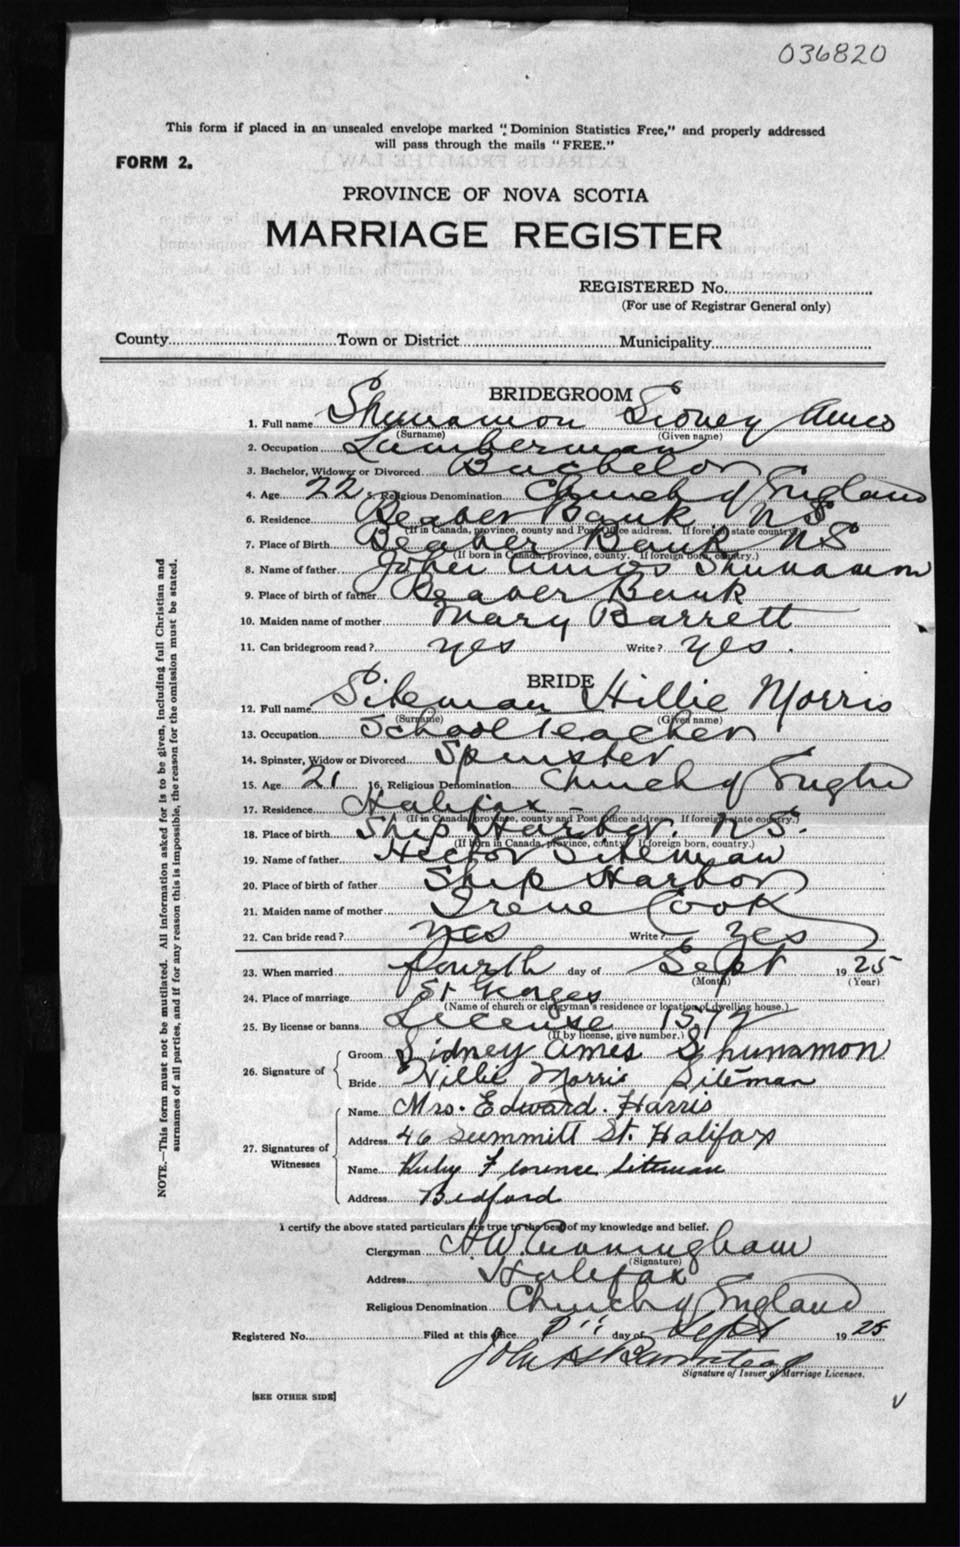 036820
This form if placed in an unsealed envelope marked "Dominion Statistics Free," and properly addressed
will pass through the mails "FREE."
FORM 2.
PROVINCE OF NOVA SCOTIA
MARRIAGE REGISTER
REGISTERED No.
(For use of Registrar General only)
County Town or District Municipality
BRIDEGROOM
1. Full name Shunamon Sidney Amos
(Surname) (Given name)
2. Occupation Lumberman
3. Bachelor, Widower or Divorced Bachelor
4. Age 22 5. Religious Denomination Church of England
6. Residence Beaver Bank NS
(If in Canada, province, county and Post Office address. If foreign state country.)
7. Place of Birth Beaver Bank NS
(If born in Canada, province, county. If foreign born, country.)
8. Name of father Amos Shunamon
9. Place of birth of father Beaver Bank
10. Maiden name of mother Mary Barrett
11. Can bridegroom read? yes Write? yes.
BRIDE
12. Full name Siteman Hillie Morris
(Surname) (Given name)
13. Occupation School Teacher
14. Spinster, Widow or Divorced Spinster
15. Age 21 16. Religious Denomination Church of
17. Residence Halifax
(If in Canada, province, county and Post Office address. If foreign state country.)
18. Place of birth Ship Harbor. NS.
(If born in Canada, province, county. If foreign born, country.)
19. Name of father Hector Siteman
20. Place of birth of father Ship Harbor
21. Maiden name of mother Irene Cook
22. Can bride read? yes Write? yes
23. When married fourth day of Sept 1925
(Month) (Year)
24. Place of marriage St Georges
(Name of church or clergyman's residence or location of dwelling house.)
25. By license or banns License
(If by license, give number.)
26. Signature of
Groom Sidney Ames Shunamon
Bride Hillie Morris Siteman
27. Signatures of Witnesses
Name Mrs. Edward. Harris
Address 46 Summitt St. Halifax
Name Ruby Florence Siteman
Address Bedford
I certify the above stated particulars are true to the best of my knowledge and belief.
Clergyman H.W. Cunningham
(Signature)
Address Halifax
Religious Denomination Church of England
Registered No. Filed at this office day of Sept 1925
John
Signature of Issuer of Marriage Licenses.
[SEE OTHER SIDE]
NOTE.—This form must not be mutilated. All information asked for is to be given, including full Christian and
surnames of all parties, and if for any reason this is impossible, the reason for the omission must be stated.